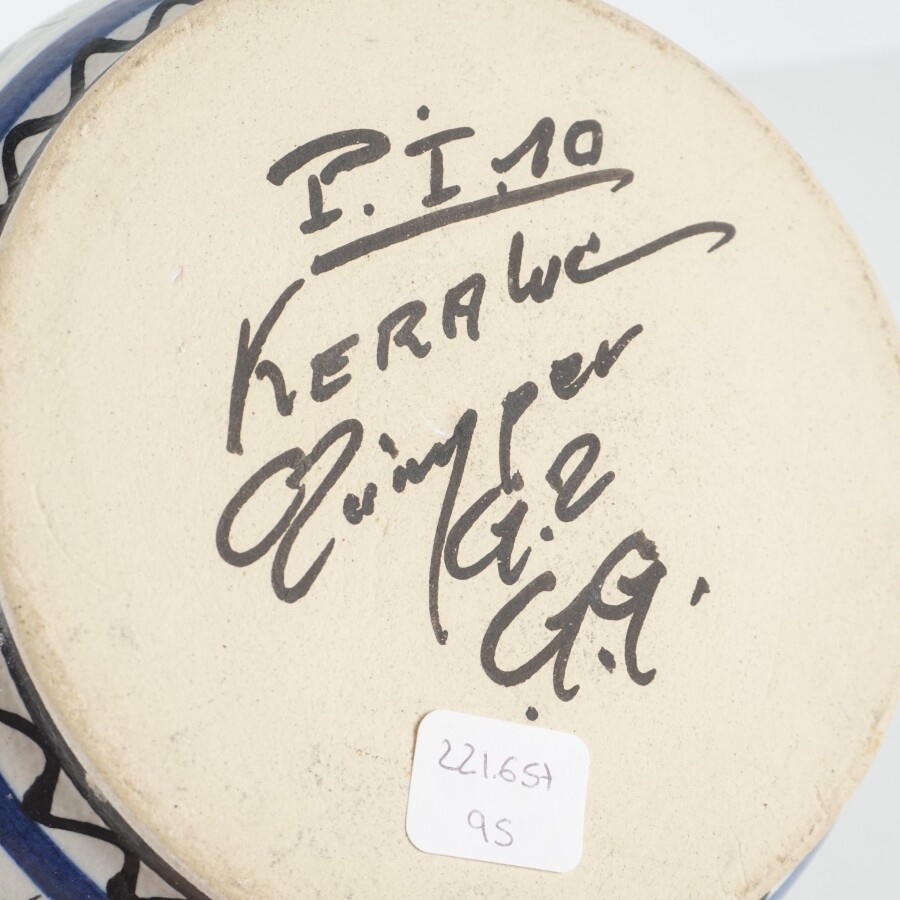 P.I.10
KERAluc
Quimper
G.2
G.G.
221.657
95